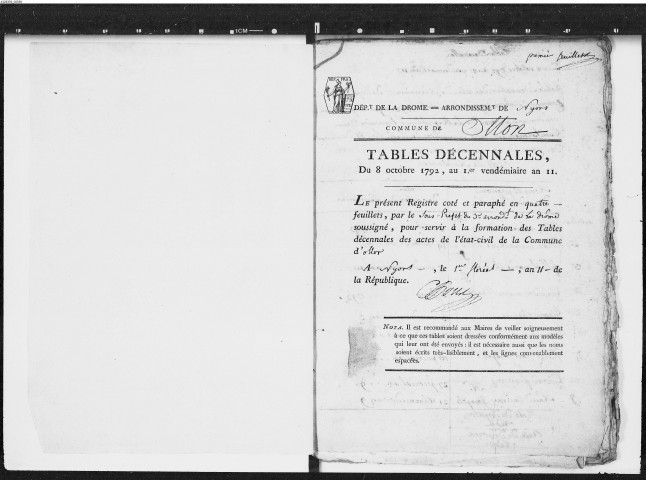 premier feuillet
DÉP.T DE LA DROME. — ARRONDISSEM.T DE Nyons
COMMUNE De Ollon
TABLES DÉCENNALES,
Du 8 octobre 1792, au 1.er vendémiaire an 11.
LE présent Registre coté et paraphé en quatre —
feuillets, par le Sous Prefet du 3e arrondt. de la drome
soussigné, pour servir à la formation des Tables
décennales des actes de l'état-civil de la Commune
d'ollon
A Nyons —, le 1er floréal —; an 11 — de
la République.
NOTA. Il est recommandé aux Maires de veiller soigneusement
à ce que ces tables soient dressées conformément aux modèles
qui leur ont été envoyés : il est nécessaire aussi que les noms
soient écrits très-lisiblement, et les lignes convenablement
espacées.
1CM